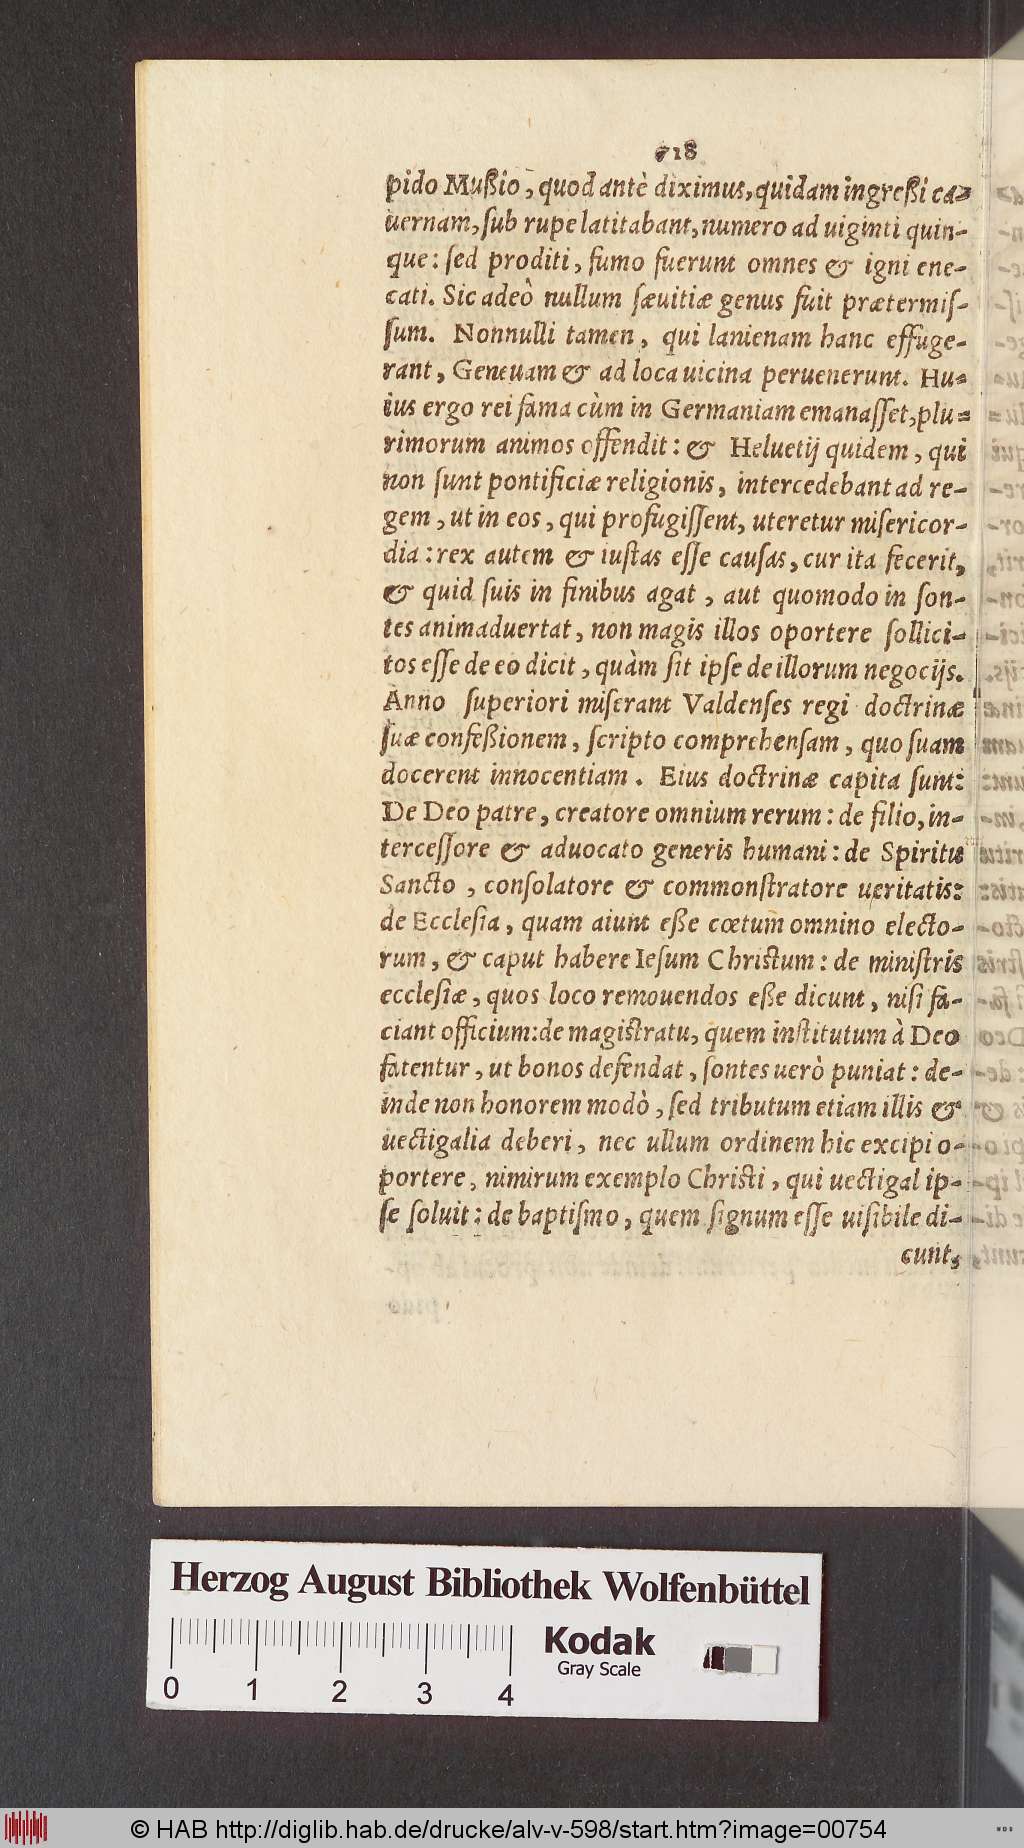 718
pido Mußio, quod antè diximus, quidam ingreßi ca-
uernam, ſub rupe latitabant, numero ad uiginti quin-
que: ſed proditi, fumo fuerunt omnes & igni ene-
cati. Sic adeò nullum ſæuitiæ genus fuit prætermiſ-
ſum. Nonnulli tamen, qui lanienam hanc effuge-
rant, Geneuam & ad loca uicina peruenerunt. Hu-
ius ergo rei fama cùm in Germaniam emanaſſet, plu-
rimorum animos offendit: & Heluetij quidem, qui
non ſunt pontificiæ religionis, intercedebant ad re-
gem, ut in eos, qui profugiſſent, uteretur miſericor-
dia: rex autem & iuſtas eſſe cauſas, cur ita fecerit,
& quid ſuis in finibus agat, aut quomodo in ſon-
tes animaduertat, non magis illos oportere ſollici-
tos eſſe de eo dicit, quàm ſit ipſe de illorum negocijs.
Anno ſuperiori miſerant Valdenſes regi doctrinæ
ſuæ confeßionem, ſcripto comprehenſam, quo ſuam
docerent innocentiam. Eius doctrinæ capita ſunt:
De Deo patre, creatore omnium rerum: de filio, in-
terceſſore & aduocato generis humani: de Spiritu
Sancto, conſolatore & commonſtratore ueritatis:
de Eccleſia, quam aiunt eße cœtum omnino electo-
rum, & caput habere Ieſum Chriſtum: de miniſtris
eccleſiæ, quos loco remouendos eße dicunt, niſi fa-
ciant officium: de magiſtratu, quem inſtitutum à Deo
fatentur, ut bonos defendat, ſontes uerò puniat: de-
inde non honorem modò, ſed tributum etiam illis &
uectigalia deberi, nec ullum ordinem hic excipi o-
portere, nimirum exemplo Chriſti, qui uectigal ip-
ſe ſoluit: de baptiſmo, quem ſignum eſſe uiſibile di-
cunt,
Herzog August Bibliothek Wolfenbüttel
Kodak
Gray Scale
0 1 2 3 4
© HAB http://diglib.hab.de/drucke/alv-v-598/start.htm?image=00754